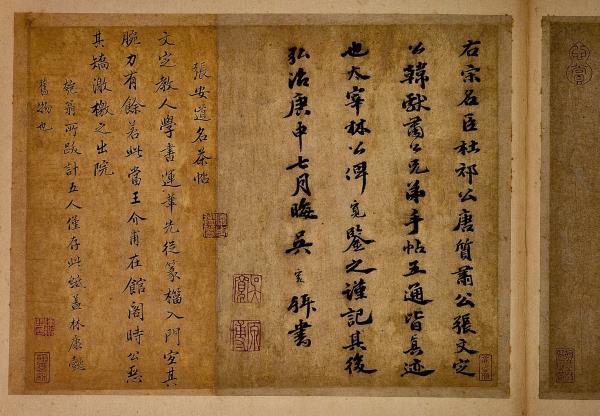 右宋名臣杜祁公唐質肅公張文定
公韓獻肅公兄弟手帖五通皆真迹
也太宰林公俾寬鑒之謹記其後
弘治庚申七月晦吳寬拜書
張安道名茶帖
文定教人學書運筆先從篆籀入門宜其
腕力有餘若此當王介甫在館閣時公惡
其矯激檄之出院
匏翁所跋計五人僅存此蓋林康懿
舊物也